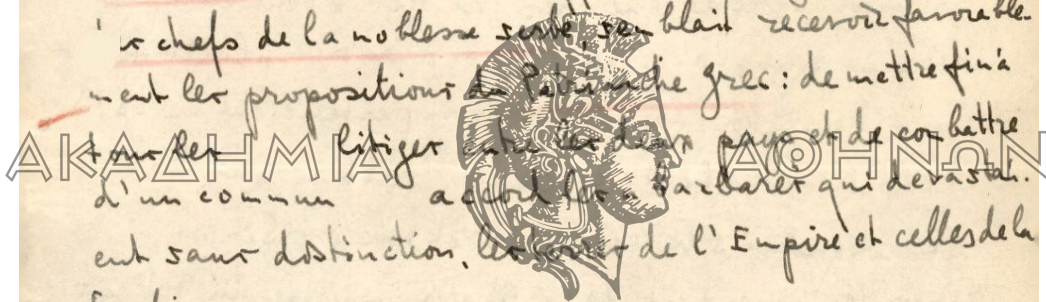 chefs de la noblesse serbe, semblait recevoir favorable-
ment les propositions du Patriarche grec : de mettre fin à
tous les litiges entre les deux pays et de combattre
ΑΚΑΔΗΜΙΑ ΑΘΗΝΩΝ
d'un commun accord les "Barbares qui dévastai-
ent sans distinction, les terres de l'Empire et celles de la